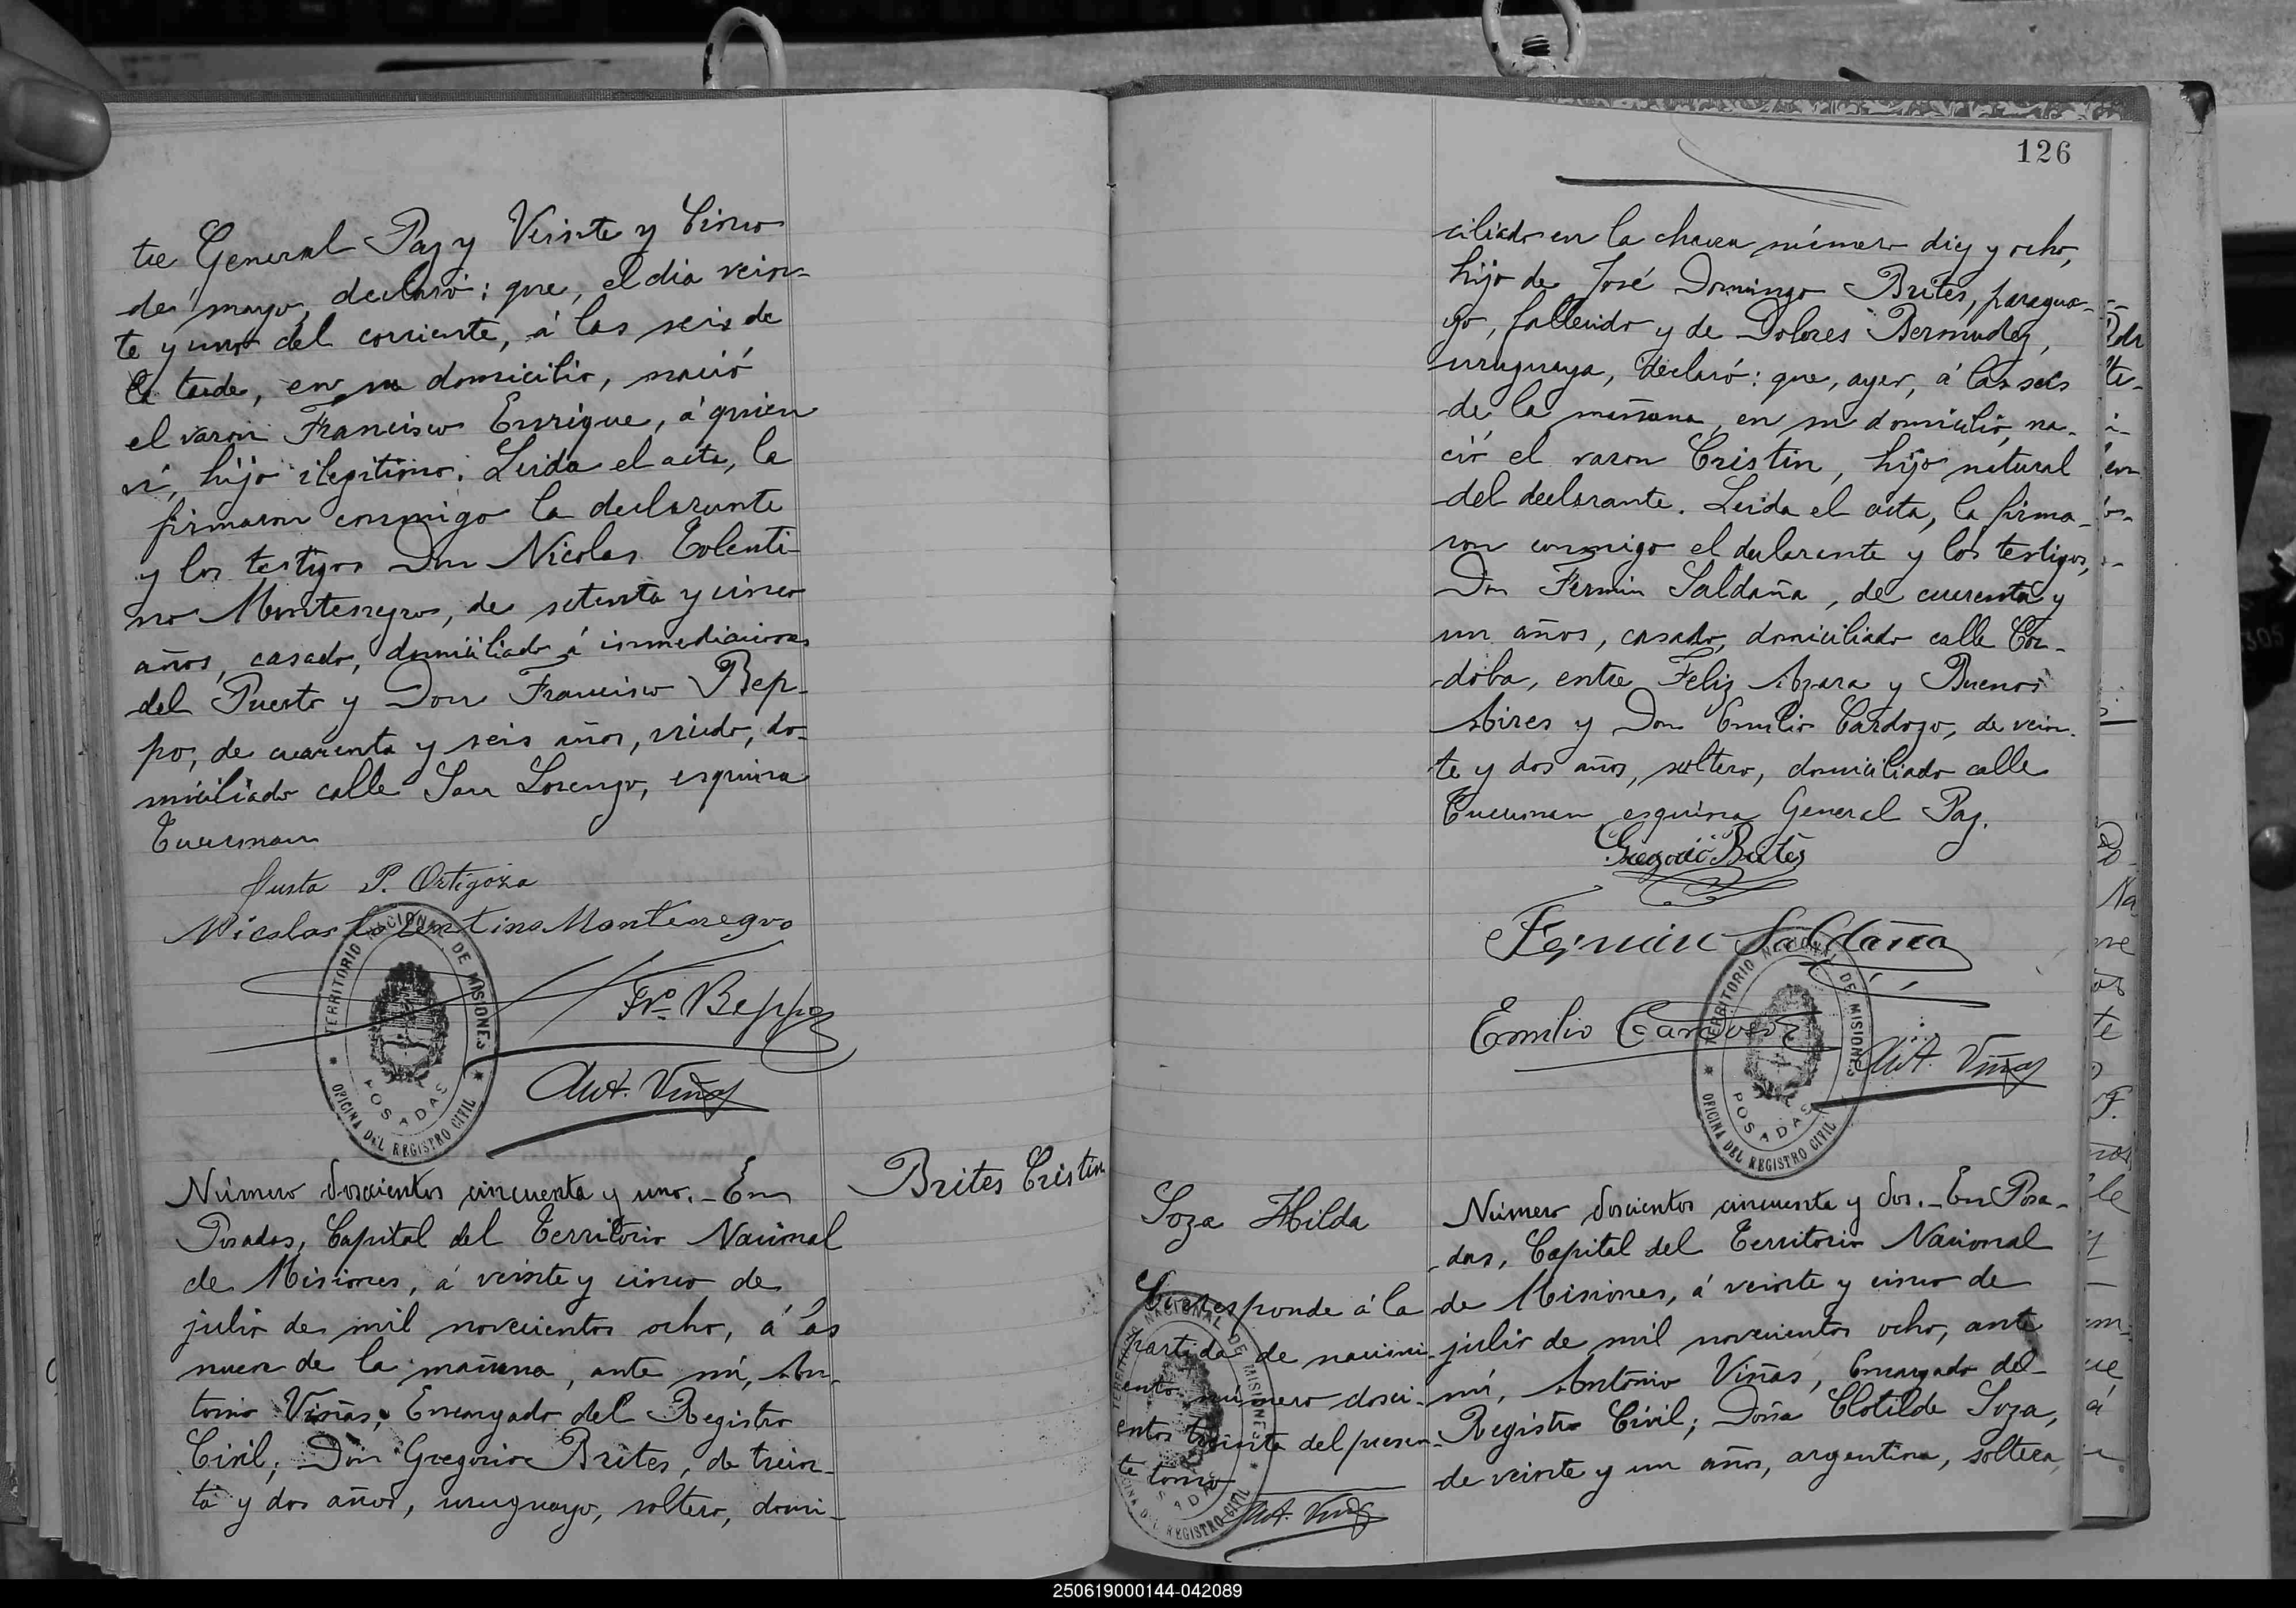 tre General Paz y Veinte y Cinco
de mayo, declaró: que, el dia vein-
te y uno del corriente, á las seis de
la tarde, en su domicilio, nació
el varon Francisco Enrique, á quien
ví, hijo ilegitimo. Leida el acta, la
firmaron conmigo la declarante
y los testigos Don Nicolas Tolenti-
no Montenegro, de setenta y cinco
años, casado, domiciliado á inmediaciones
del Puerto y Don Francisco Bep-
po, de cuarenta y seis años, viudo, do-
miciliado calle San Lorenzo, esquina
Tucuman
Justa P. Ortigoza
Nicolas Tolentino Montenegro
Frco Beppo
Ant. Viñas
TERRITORIO NACIONAL DE MISIONES
POSADAS
OFICINA DEL REGISTRO CIVIL
Brites Cristin
Número doscientos cincuenta y uno. - En
Posadas, Capital del Territorio Nacional
de Misiones, á veinte y cinco de
julio de mil novecientos ocho, á las
nueve de la mañana, ante mí, An-
tonio Viñas, Encargado del Registro
Civil; Don Gregorio Brites, de trein-
ta y dos años, uruguayo, soltero, domi-
126
ciliado en la chacra número diez y ocho,
hijo de José Domingo Brites, paragua-
yo, fallecido y de Dolores Bermudez,
uruguaya, declaró: que, ayer, á las seis
de la mañana, en su domicilio, na-
ció el varon Cristin, hijo natural
del declarante. Leida el acta, la firma-
ron conmigo el declarante y los testigos,
Don Fermin Saldaña, de cuarenta y
un años, casado, domiciliado calle Cór-
doba, entre Feliz Azara y Buenos
Aires y Don Emilio Cardozo, de vein-
te y dos años, soltero, domiciliado calle
Tucuman esquina General Paz.
Gregorio Brites
Fermin Saldaña
Emilio Cardozo
Ant. Viñas
TERRITORIO NACIONAL DE MISIONES
POSADAS
OFICINA DEL REGISTRO CIVIL
Soza Hilda
Corresponde á la
partida de nacimi-
ento número dosci-
entos treinta del presen-
te tomo
Ant. Viñas
Número doscientos cincuenta y dos. - En Posa-
das, Capital del Territorio Nacional
de Misiones, á veinte y cinco de
julio de mil novecientos ocho, ante
mí, Antonio Viñas, Encargado del
Registro Civil; Doña Clotilde Soza,
de veinte y un años, argentina, soltera,
250619000144-042089